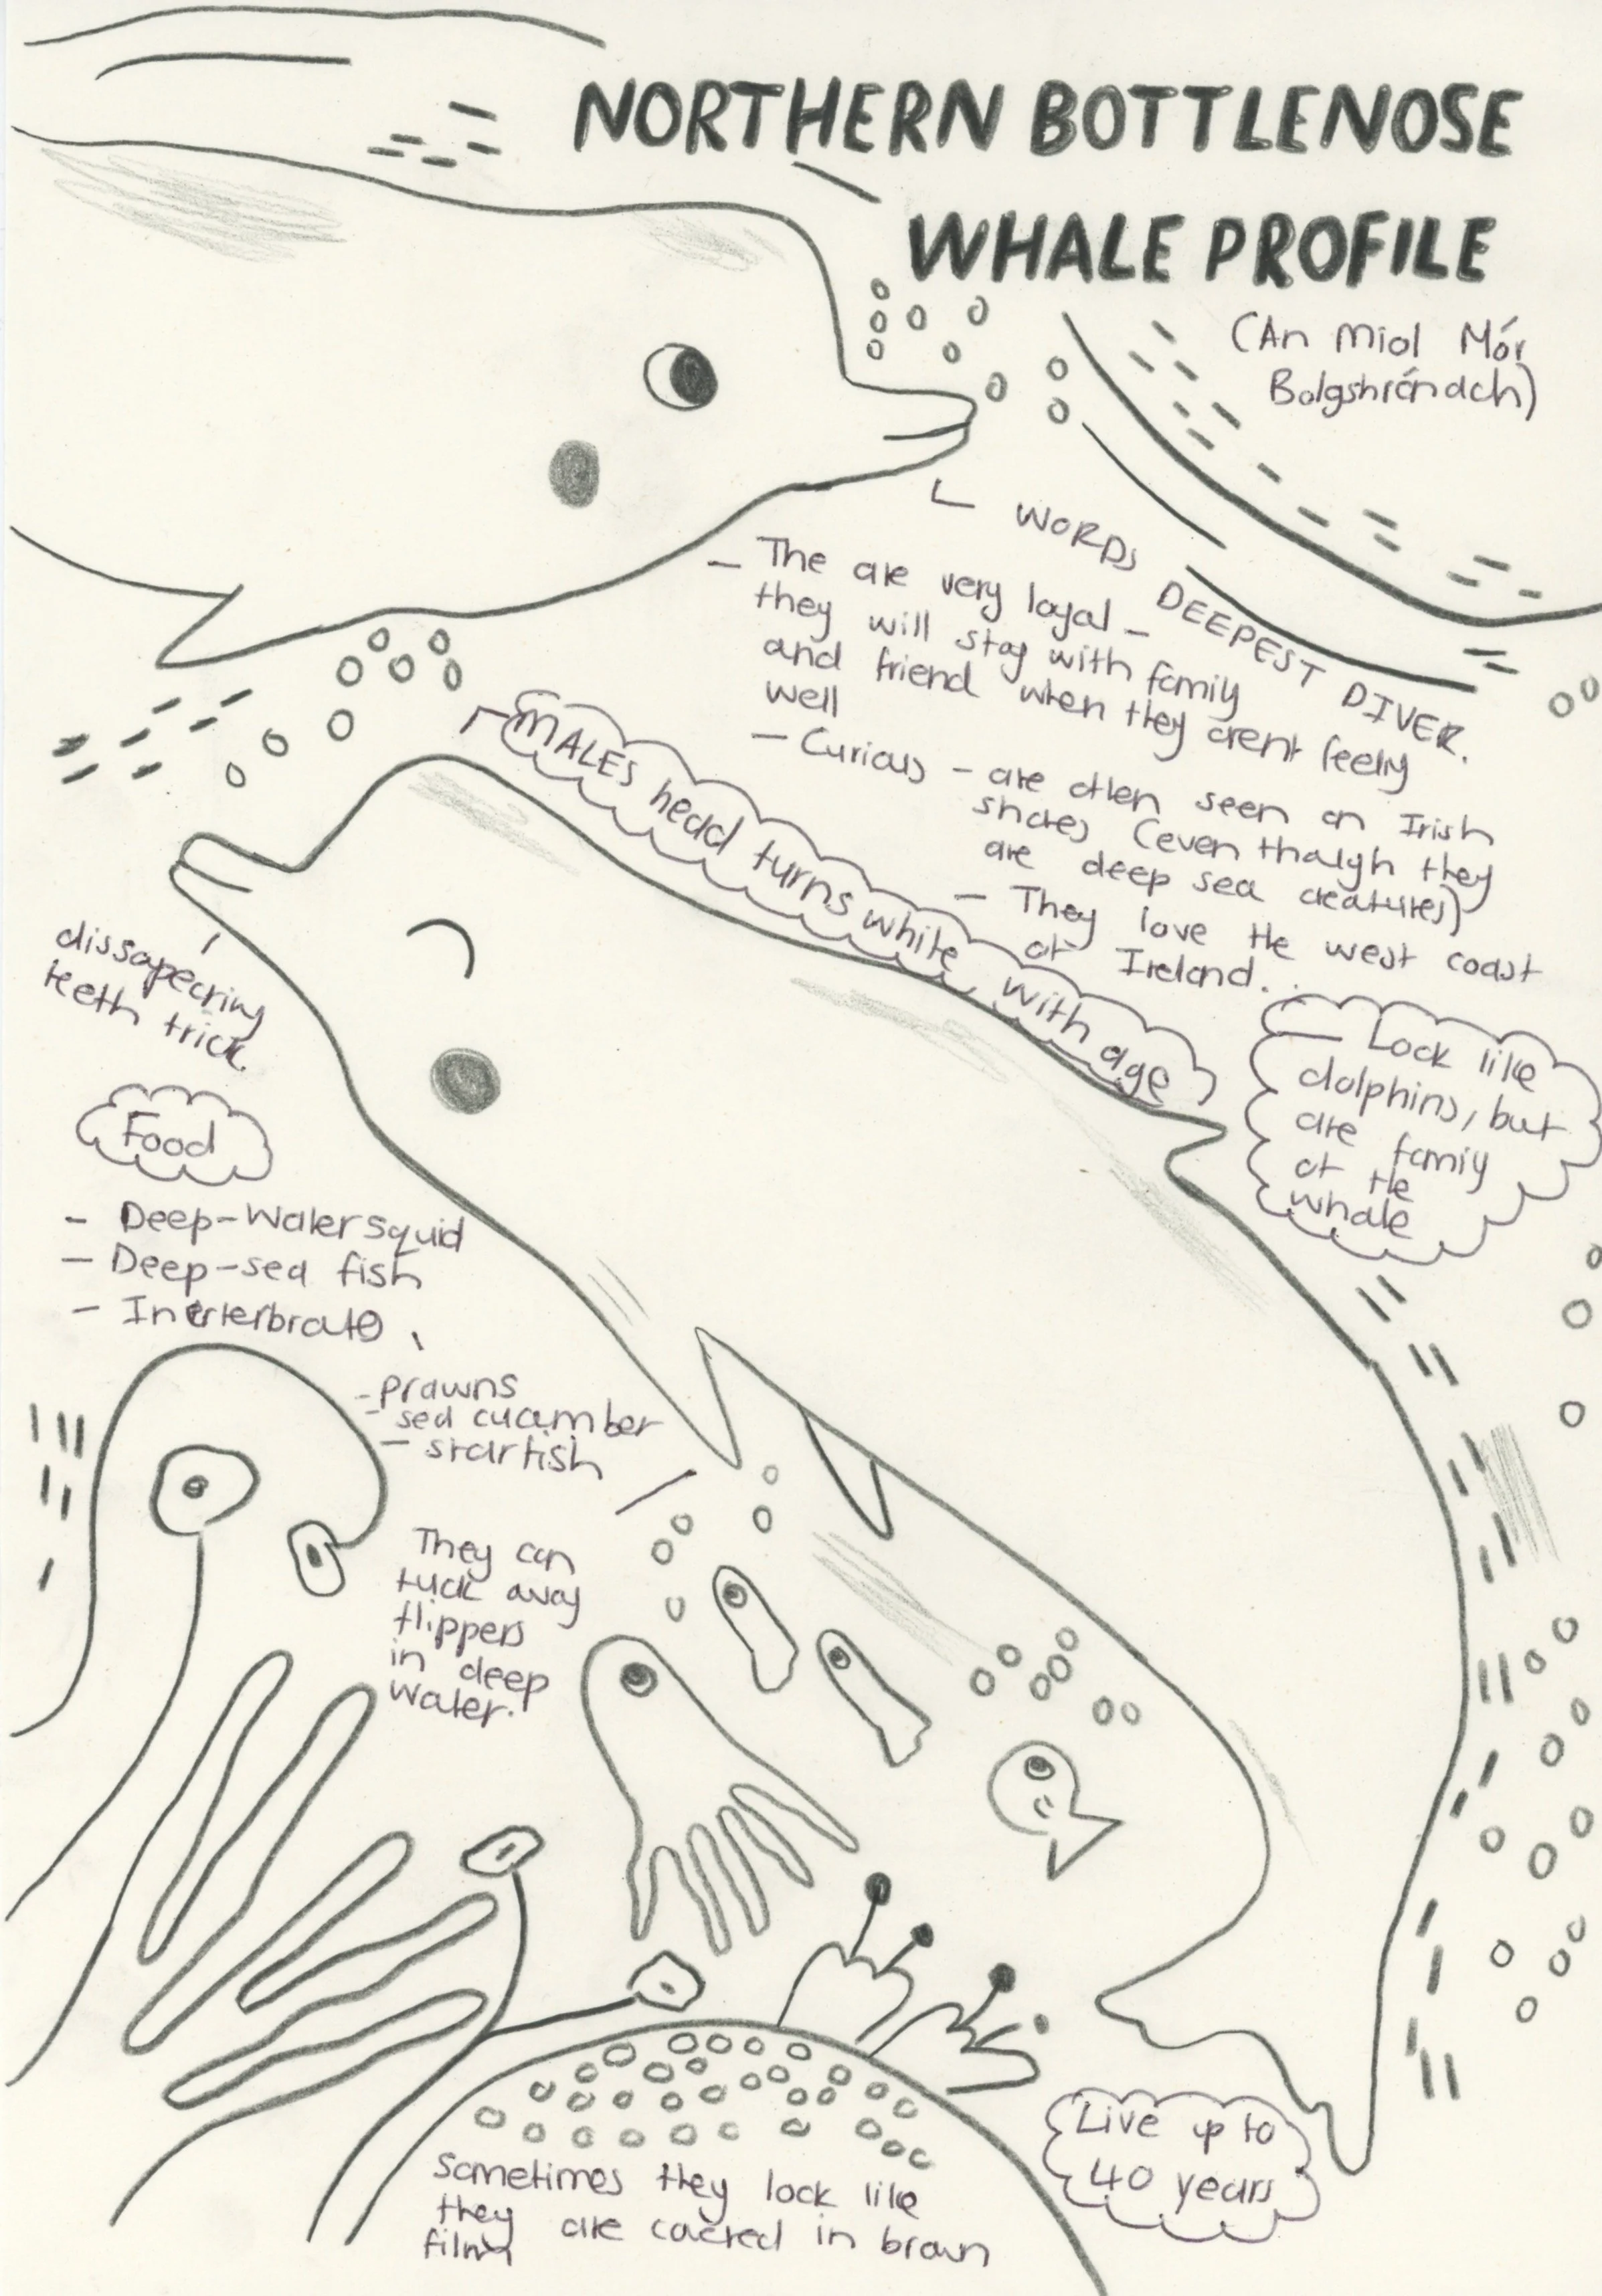 NORTHERN BOTTLENOSE
WHALE PROFILE
(An Miol Mór
Bolgshrónach)
WORDS DEEPEST DIVER.
- The are very loyal -
they will stay with family
and friend when they arent feeling
well
- Curious - are often seen on Irish
shores (even though they
are deep sea creatures)
- They love the west coast
of Ireland.
MALES head turns white with age
- Look like
dolphins, but
are family
of the
whale
dissapearing
teeth trick.
Food
- Deep-Water squid
- Deep-sea fish
- Inverterbrate
- prawns
- sea cucumber
- starfish
They can
tuck away
flippers
in deep
water.
Live up to
40 years
Sometimes they look like
they are covered in brown
film